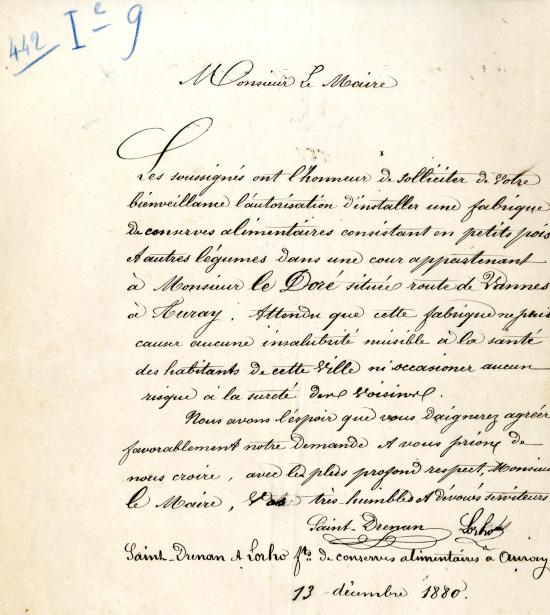 442 Ie 9
Monsieur Le Maire
Les soussignés ont l'honneur de solliciter de Votre
bienveillance l'autorisation d'installer une fabrique
de conserves alimentaires consistant en petits pois
et autres légumes dans une cour appartenant
à Monsieur le Doré située route de Vannes
à Auray. Attendu que cette fabrique ne peut
causer aucune insalubrité nuisible à la santé
des habitants de cette Ville ni occasioner aucun
risque à la sureté des Voisins.
Nous avons l'espoir que vous daignerez agréer
favorablement notre demande et vous prions de
nous croire, avec le plus profond respect, Monsieur
le Maire, Vos très humbles et dévoués serviteurs
Saint-Drenan Lorho
Saint-Drenan et Lorho fts de conserves alimentaires à Auray
13 décembre 1880.